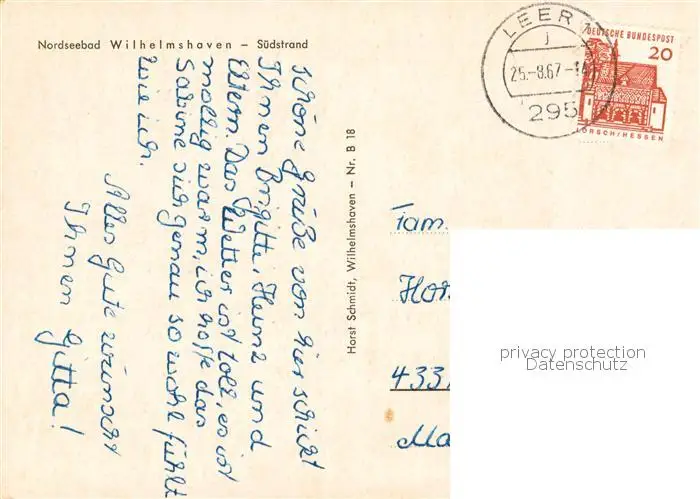 Nordseebad Wilhelmshaven – Südstrand
schöne Grüße von hier schickt
Ihnen Brigitte, Heinz und
Eltern. Das Wetter ist toll, es ist
mollig warm, ich hoffe das
Sabine sich genau so wohl fühlt
wie ich.
Alles Gute wünscht
Ihnen Gitta!
Horst Schmidt, Wilhelmshaven – Nr. B 18
LEER
25.-8.67-14
295
DEUTSCHE BUNDESPOST
20
LORSCH/HESSEN
Fam.
433
privacy protection
Datenschutz